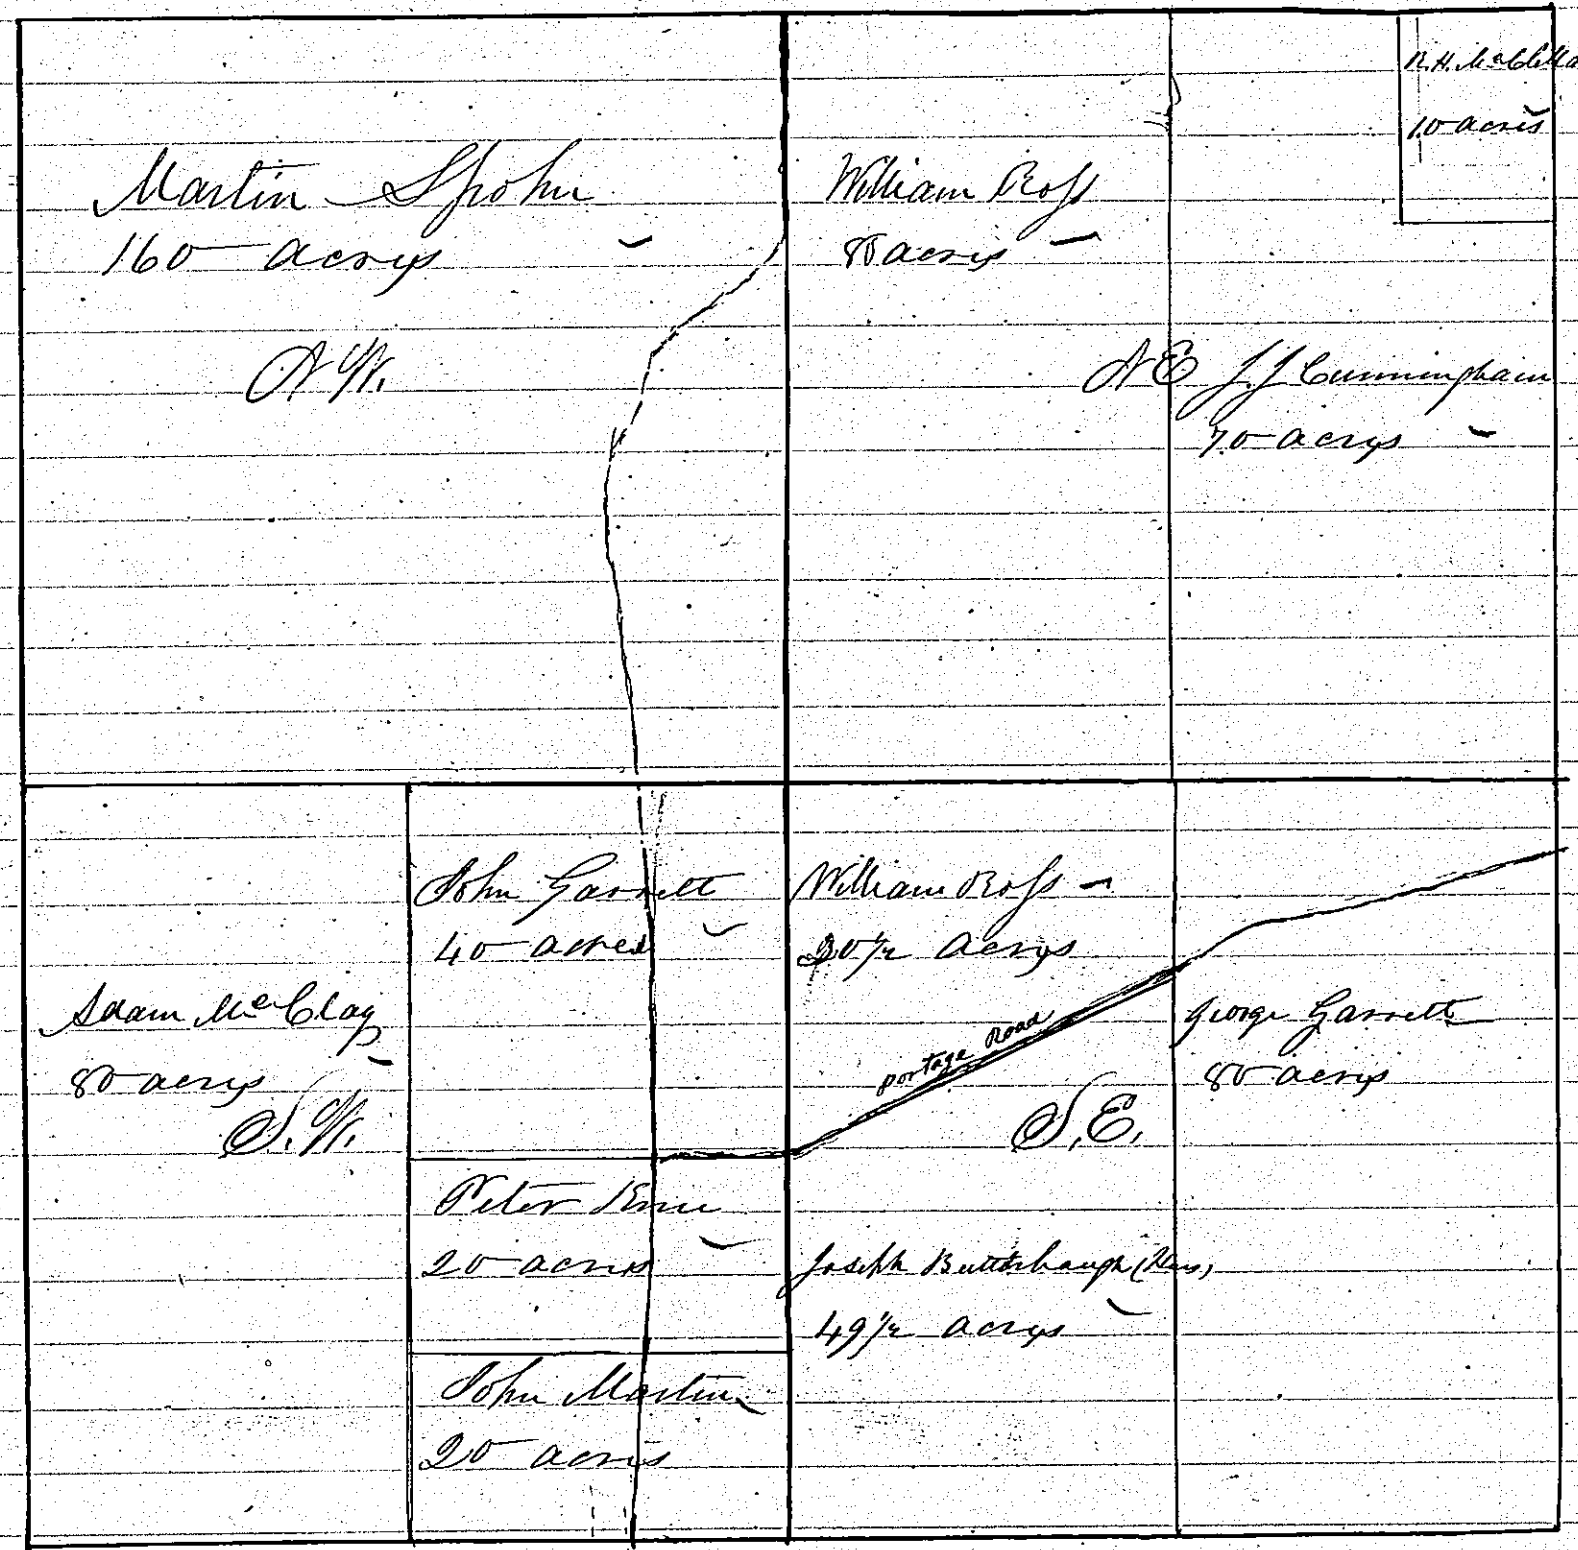 Martin Spohn
160 acres
N W.
William Ross
80 acres
R. H.
10 acres
N E
J. J Cunningham
70 acres
Adam McClay
80 acres
S. W.
John Garrett
40 acres
Peter
20 acres
John Martin
20 acres
William Ross
30½ acres
portage Road
S. E.
Joseph Butterbaugh (Heirs)
49½ acres
George Garrett
80 acres